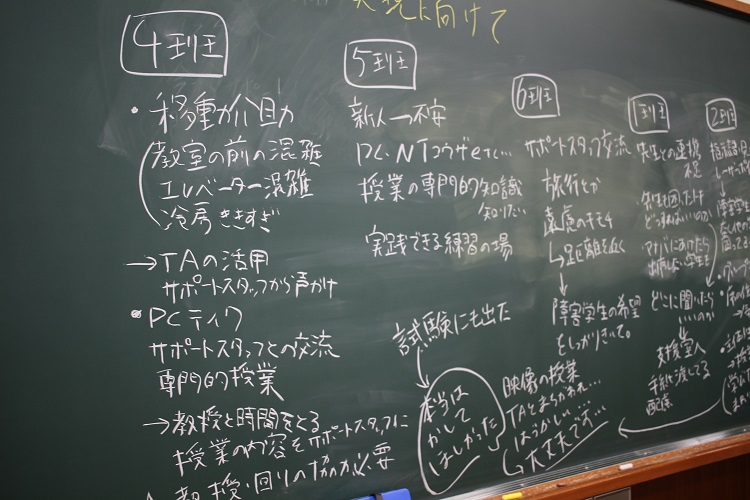 実現に向けて
4班
・移動介助
教室の前の混雑
エレベーター混雑
冷房ききすぎ
→TAの活用
サポートスタッフから声かけ
・PCテイク
サポートスタッフとの交流
専門的授業
→教授と時間をとる
授業の内容をサポートスタッフに
教授・回りの協力必要
5班
新人→不安
PC・NTコウザetc…
授業の専門的知識
知りたい
実践できる練習の場
試験にも出た
本当は
かして
ほしかった
6班
サポートスタッフ交流
旅行とか
遠慮のキモチ
→距離を近く
障害学生の希望
をしっかりきいて。
映像の授業
TAともらわれ…
はずかしい…
大丈夫です…
1班
先生との連携
不足
先生も困ったとき
どうすればいいのか
どこに聞いたら
いいのか
支援室へ
手紙渡してる
配慮
2班
障害学生